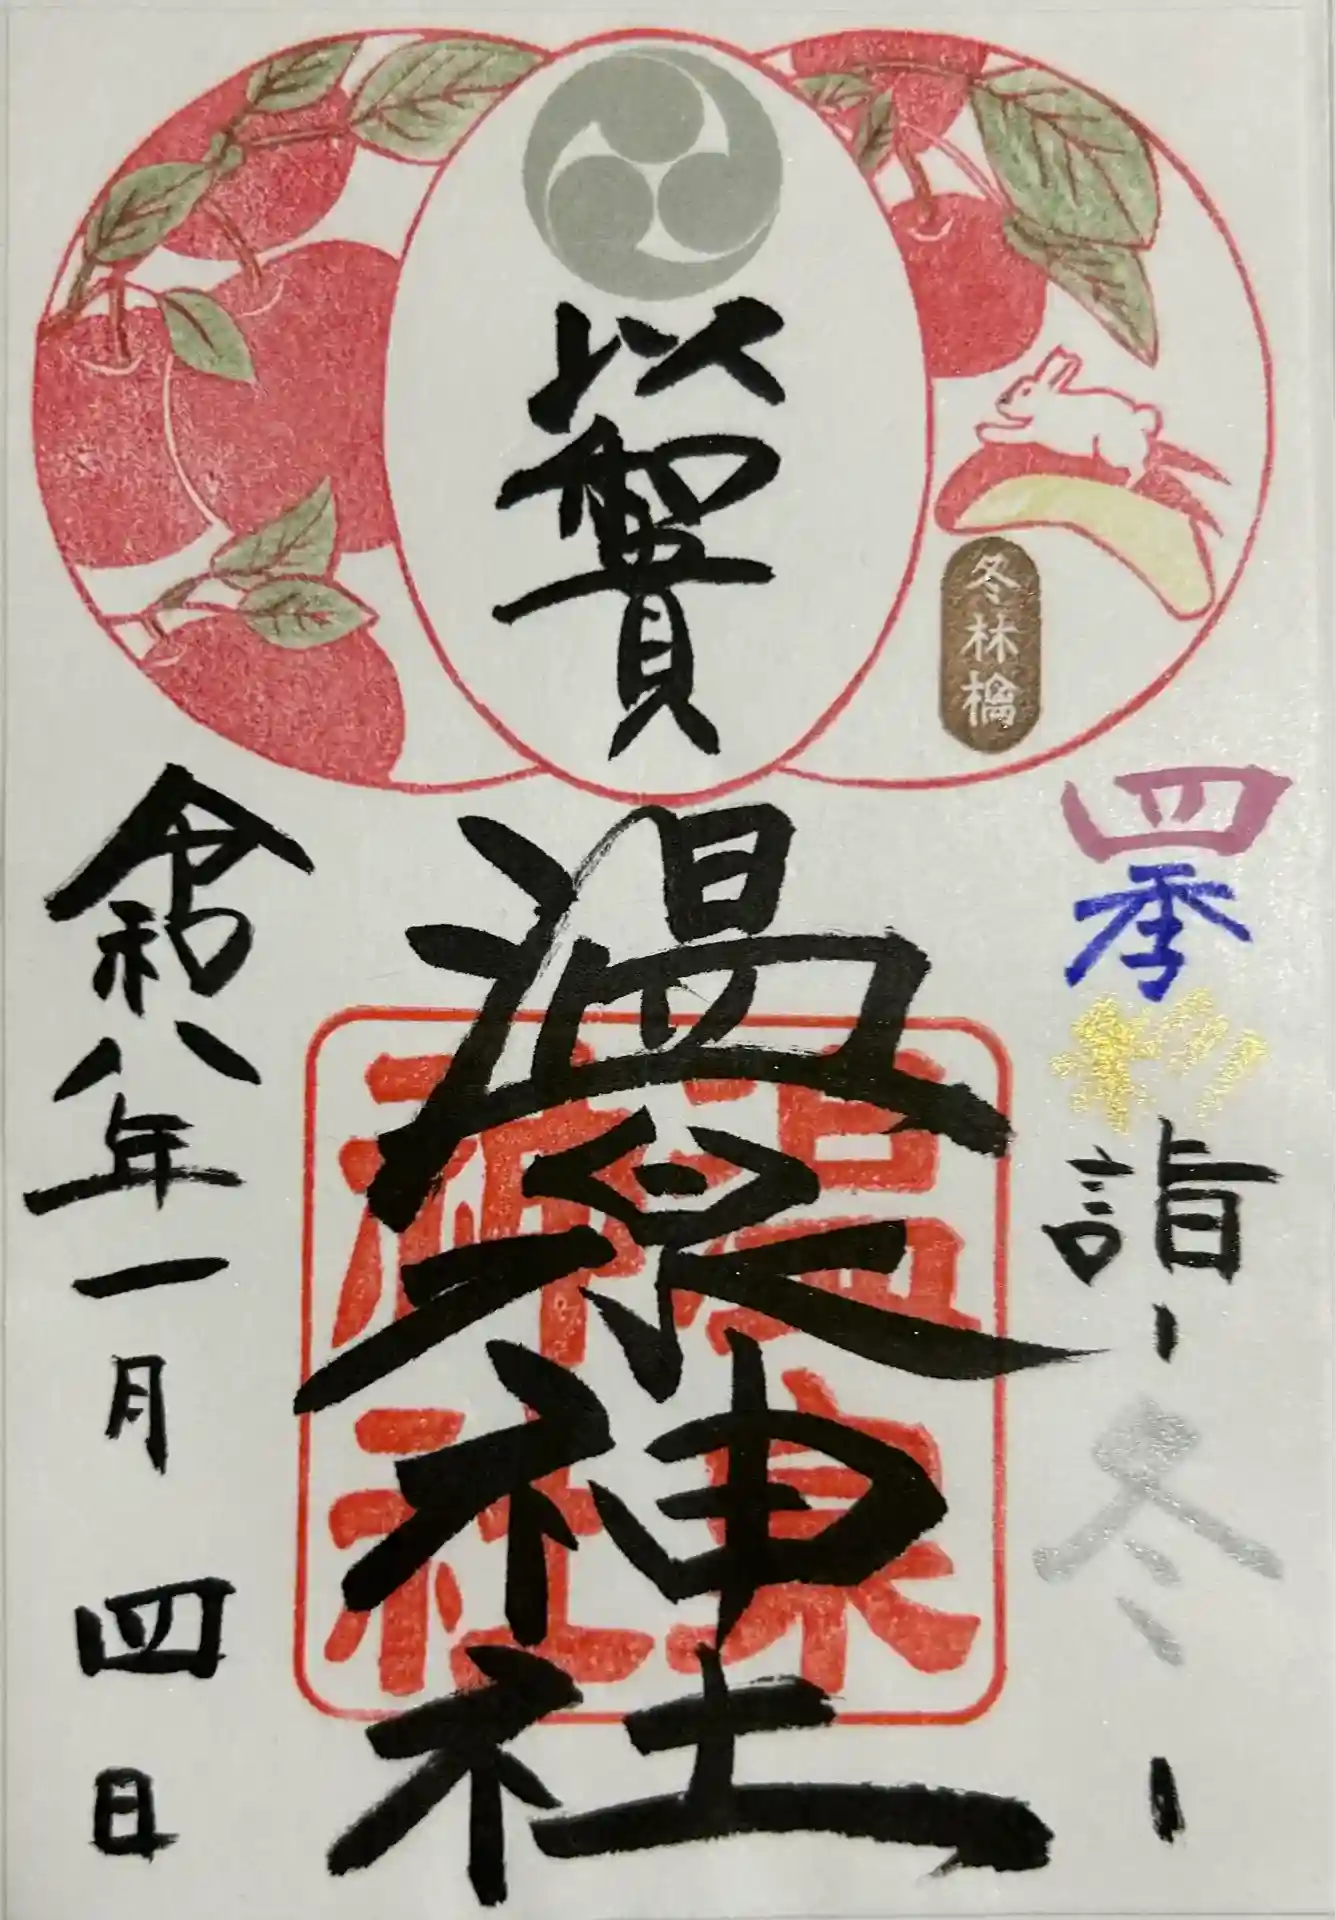 四季彩詣-冬-
冬林檎
温泉神社
温泉
神社
令和八年一月四日